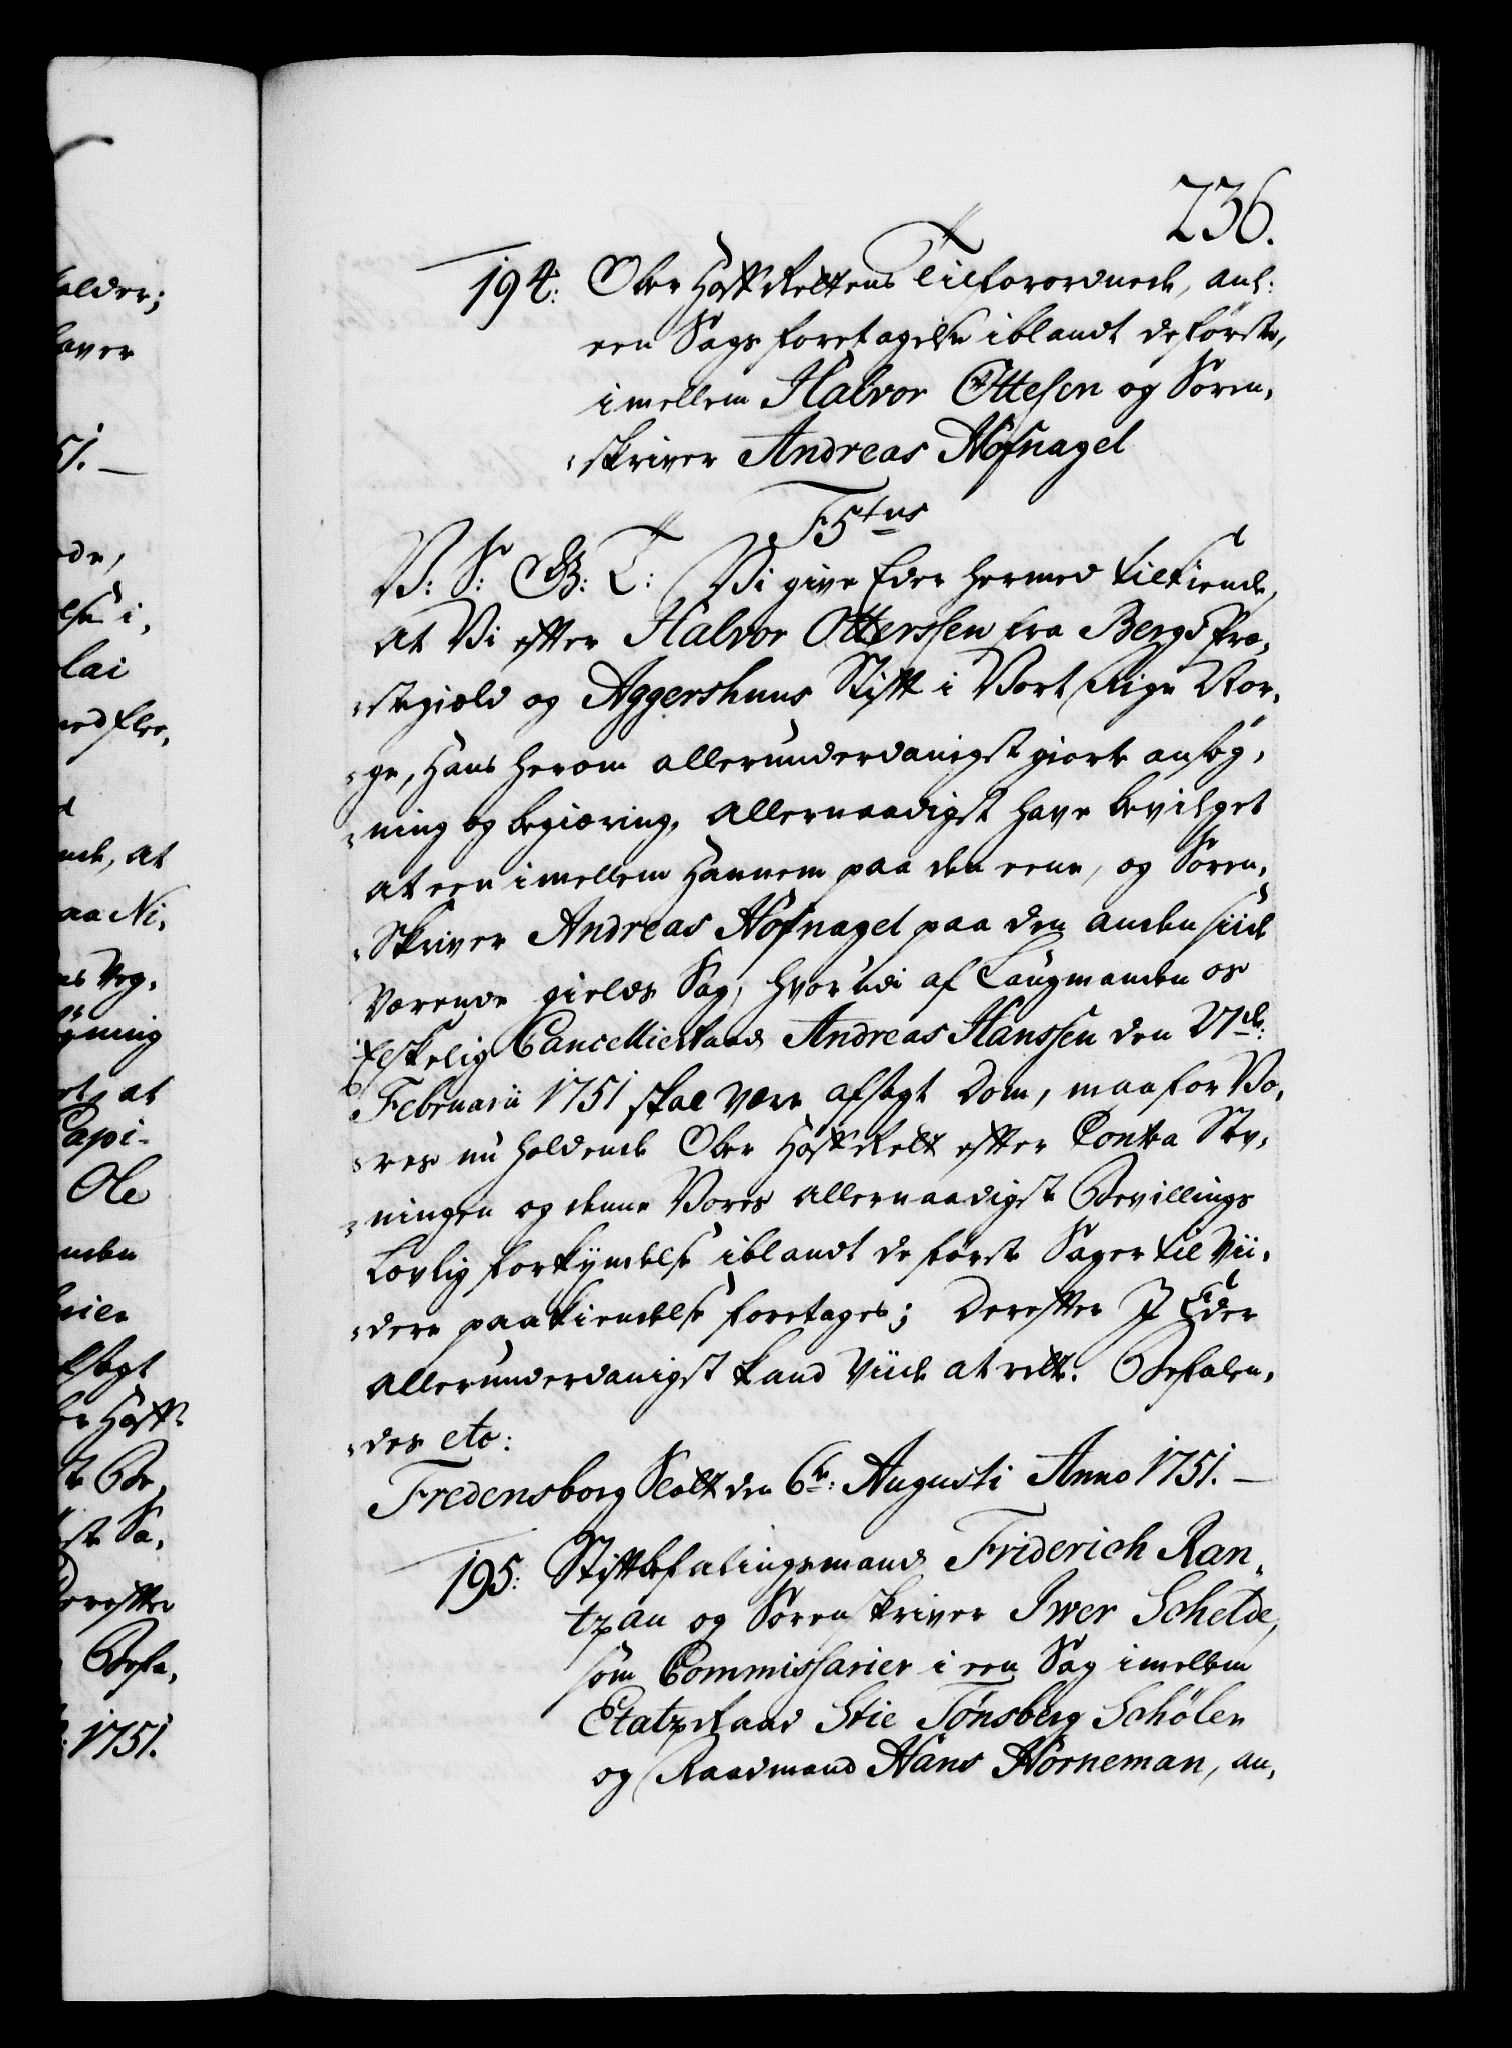 236.
194: Ober Hoff Rettens Tilforordnede, anl:
een Sags foretagelse iblandt de første,
imellem Halvor Ottesen og Soren-
skriver Andreas Hofnagel
F5tus
V: S: G: T: Vi give Eder hermed tilkiende,
at Vi efter Halvor Otterssen fra Bergs Præ-
stegield og Aggershuus Stift i Vort Rige Nor-
ge, Hans herom allerunderdanigst giorte ansøg-
ning og begiæring, allernaadigst have bevilget
at een imellem Hannem paa den eene, og Soren-
Skriver Andreas Hofnagel paa den anden siide
Værende gields Sag, hvorudi af Laugmanden os
Elskelig Cancellie Raad Andreas Hanssen den 27de:
Februarii 1751 skal være afsagt Dom, maa for Vo-
res nu holdende Ober Hoff Rett efter Contra Stev-
ningen og denne Vores allernaadigste Bevillings
Lovlig forkyndelse iblandt de første Sager til Vii-
dere paakiendelse foretages; Derefter I Eder
allerunderdanigst kand Viide at rette. Befalen-
des etc:
Fredensborg Slott den 6te: Augusti Anno 1751.
195: Stiftbefalingsmand Friderich Ran-
tzau og Sorenskriver Iwer Schelde,
som Commissarier i een Sag imellem
Etatz Raad Stie Tønsberg Schøler
og Raadmand Hans Horneman, an-